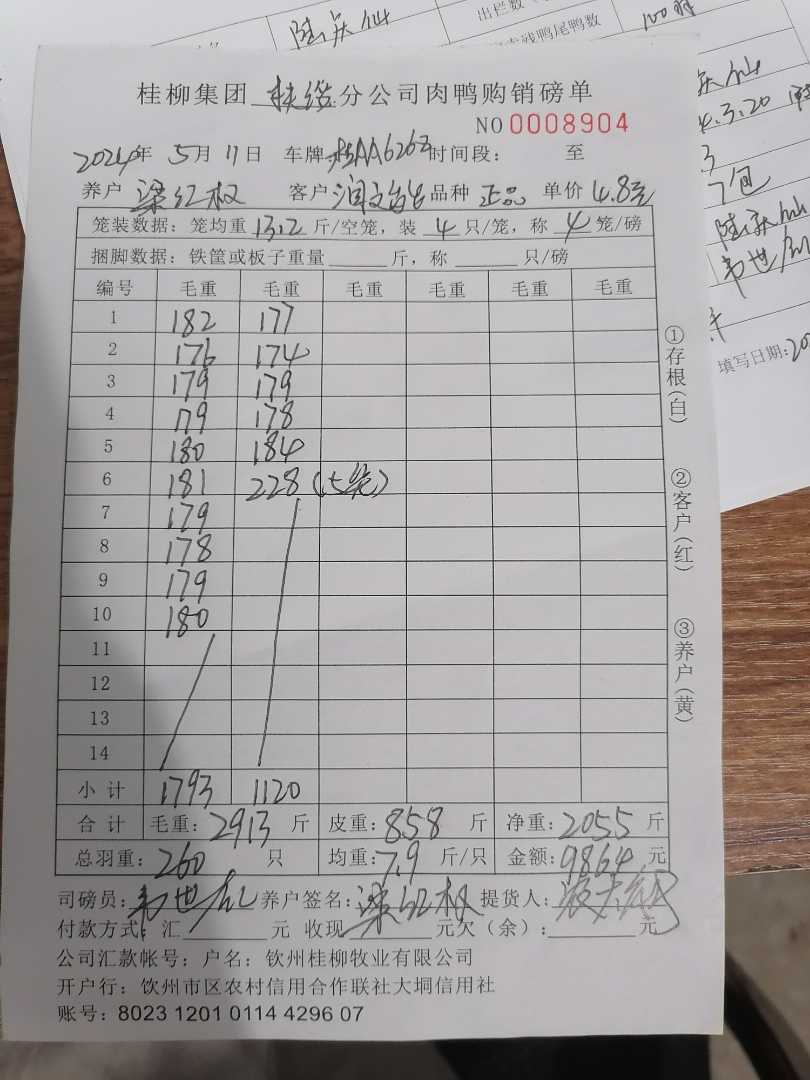 陆
出栏数
残鸭尾鸭数
100
桂柳集团 扶绥 分公司肉鸭购销磅单
NO 0008904
2024年 5月 11日 车牌:桂AA6262 时间段: 至
养户 梁红权 客户 润 品种 正品 单价 4.8元
笼装数据:笼均重 13.2 斤/空笼,装 4 只/笼,称 4 笼/磅
捆脚数据:铁筐或板子重量 斤,称 只/磅
编号 毛重 毛重 毛重 毛重 毛重 毛重
1 182 177
2 176 174
3 179 179
4 179 178
5 180 184
6 181 228 (5笼)
7 179
8 178
9 179
10 180
11
12
13
14
小计 1793 1120
合计 毛重:2913 斤 皮重:858 斤 净重:2055 斤
总羽重:260 只 均重:7.9 斤/只 金额:9864 元
司磅员:韦世 养户签名:梁红权 提货人:
付款方式:汇 元 收现 元欠(余): 元
公司汇款帐号:户名:钦州桂柳牧业有限公司
开户行:饮州市区农村信用合作联社大垌信用社
账号:8023 1201 0114 4296 07
①存根(白)
②客户(红)
③养户(黄)
4.3.20
3
7包
韦世
填写日期:20